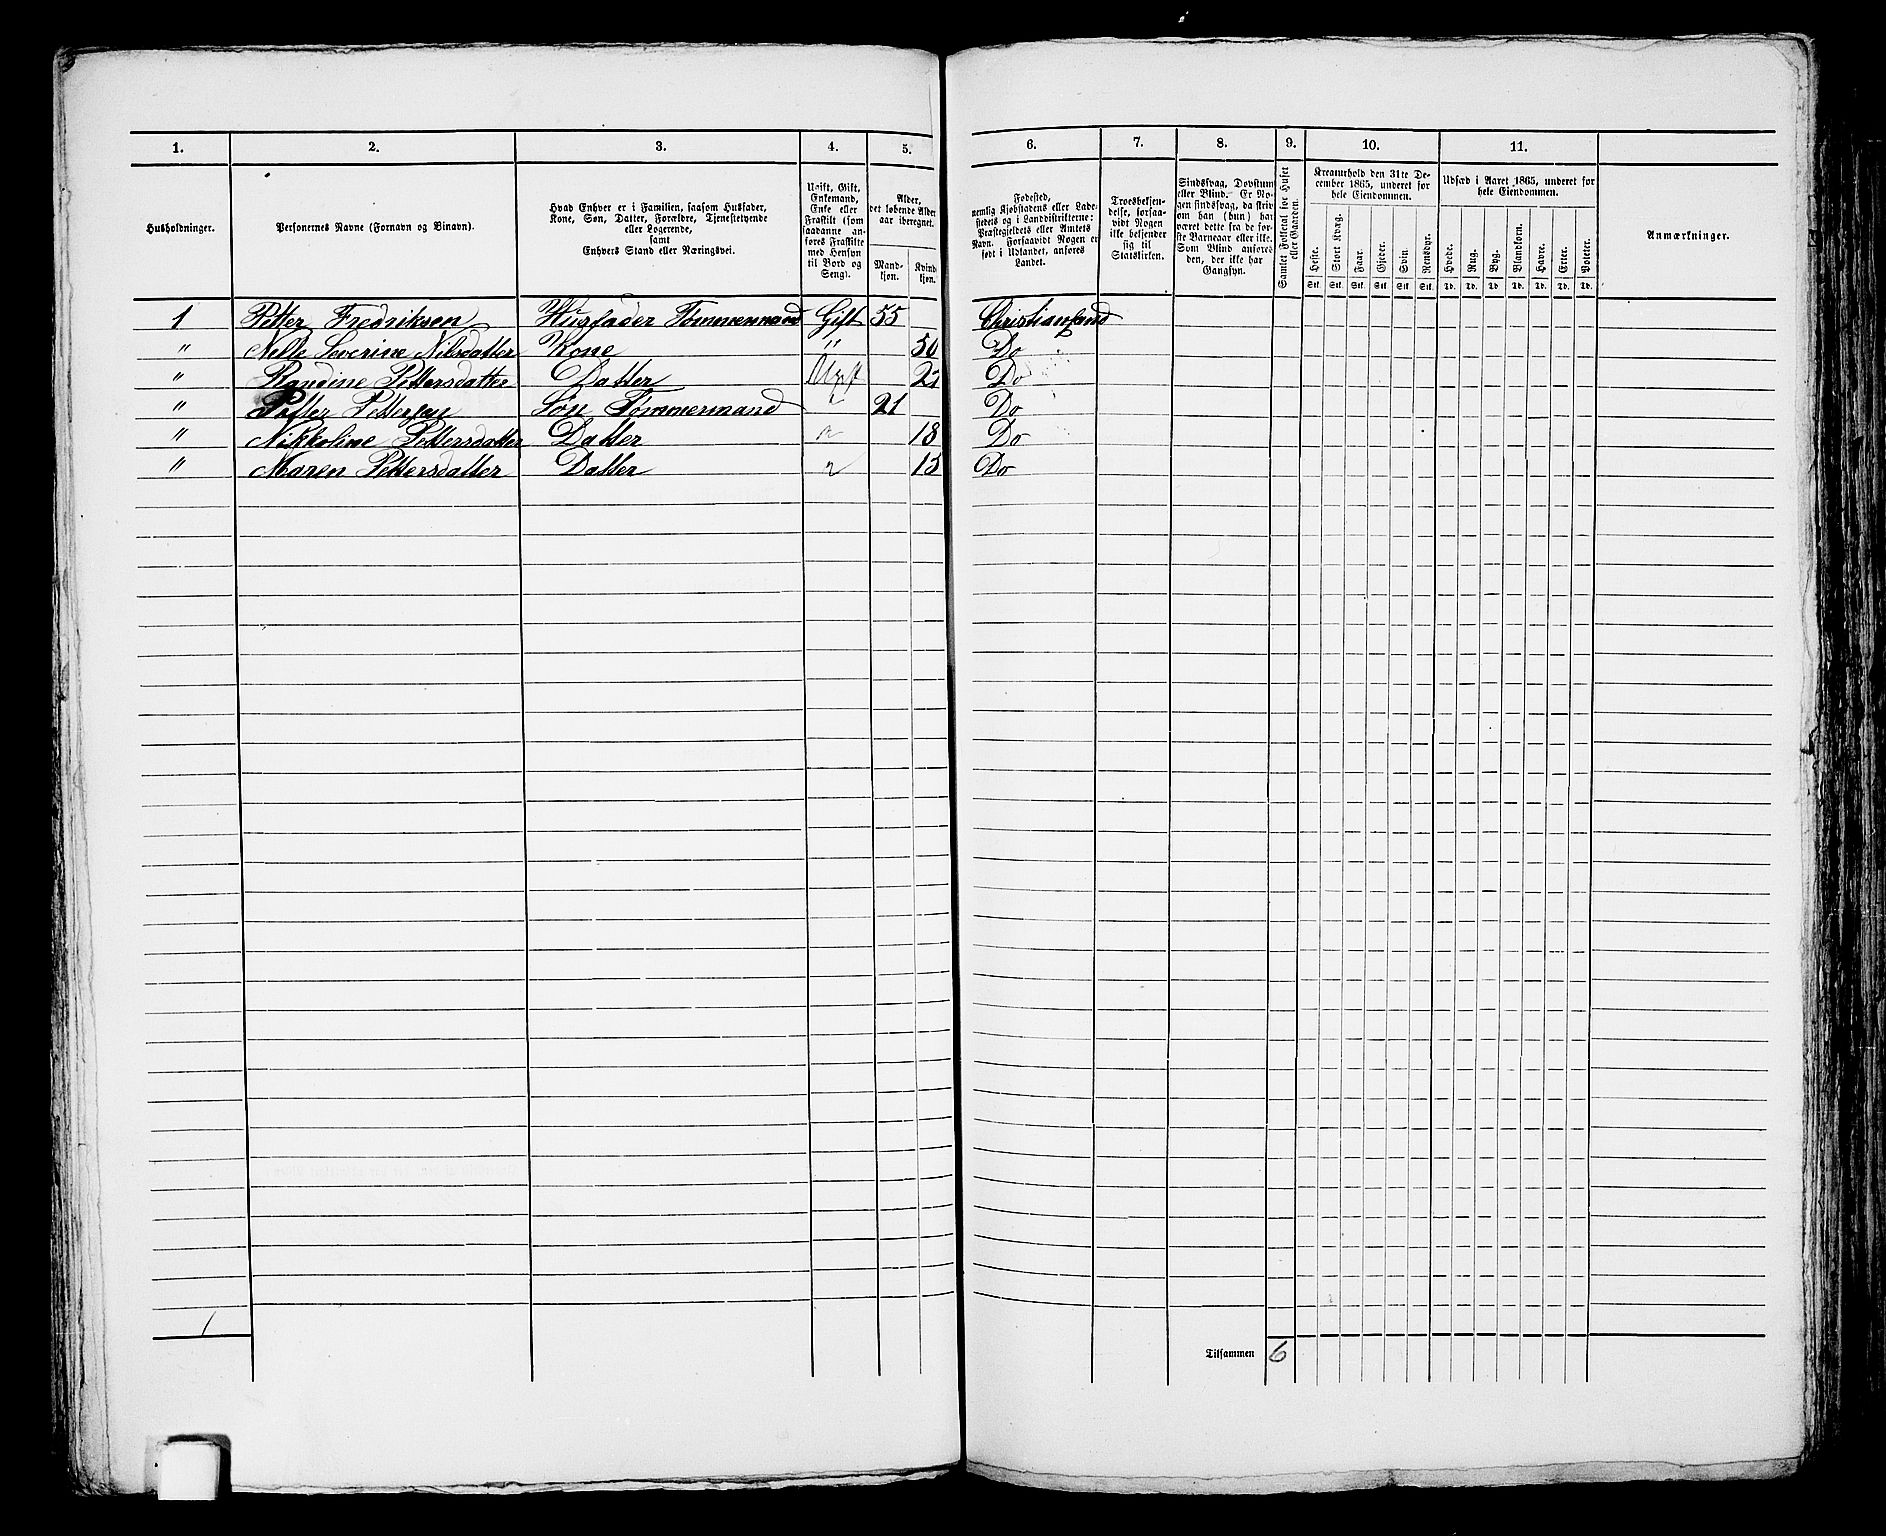 1. 2. 3. 4. 5. 6. 7. 8. 9. 10. 11.
Husholdninger.
Personernes Navne (Fornavn og Binavn).
Hvad Enhver er i Familien, saasom Husfader,
Kone, Søn, Datter, Forældre, Tjenestetyende
eller Logerende,
samt
Enhvers Stand eller Næringsvei.
Ugift, Gift,
Enkemand,
Enke eller
Fraskilt (som
saadanne an-
føres Fraskilte
med Hensyn
til Bord og
Seng).
Alder,
det løbende Alder
aar iberegnet.
Mand-
kjøn.
Kvind-
kjøn.
Fødested,
nemlig Kjøbstadens eller Lade-
stedets og i Landdistrikterne:
Præstegjeldets eller Amtets
Navn. Forsaavidt Nogen er
født i Udlandet, anføres
Landet.
Troesbekjen-
delse, forsaa-
vidt Nogen
ikke bekjender
sig til
Statskirken.
Sindssvag, Døvstum
eller Blind. Er No-
gen sindssvag, da skriv
om han (hun) har
været dette fra de før-
ste Barneaar eller ikke.
Som Blind anføres
den, der ikke har
Gangsyn.
Samlet Folketal for Huset
eller Gaarden.
Kreaturhold den 31te De-
cember 1865, underet for
hele Eiendommen.
Heste. Stort Kvæg. Faar. Gjeder. Svin. Rensdyr.
Stk. Stk. Stk. Stk. Stk. Stk.
Udsæd i Aaret 1865, underet for
hele Eiendommen.
Hvede. Rug. Byg. Blandkorn. Havre. Erter. Poteter.
Td. Td. Td. Td. Td. Td. Td.
Anmærkninger.
1 Petter Fredriksen Husfader Tømmermand Gift 55 Christiansand
" Nelle Severine Nilsdatter Kone " 50 Do
" Randine Pettersdatter Datter Ugift Do
" Petter Pettersen Søn Tømmermand " 21 Do
" Nikkoline Pettersdatter Datter " 18 Do
" Maren Pettersdatter Datter " 15 Do
1
Tilsammen 6